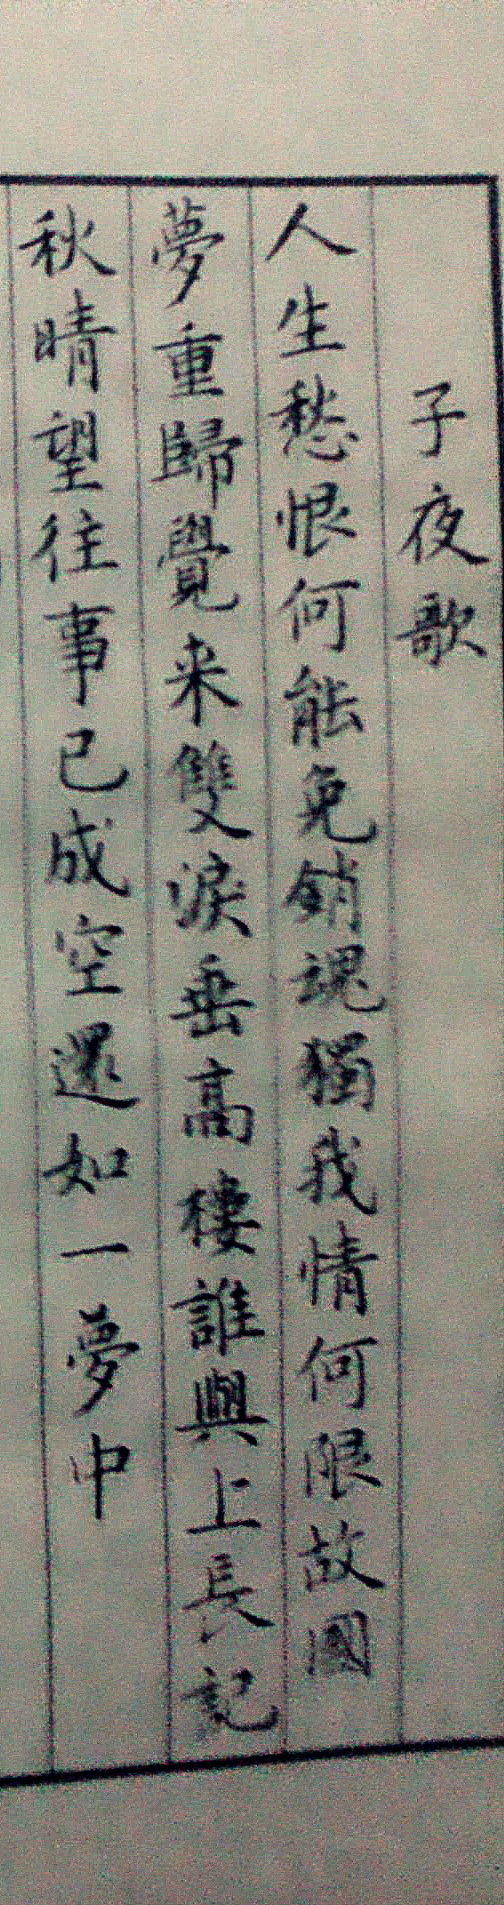 子夜歌
人生愁恨何能免銷魂獨我情何限故國
夢重歸覺来雙淚垂高樓誰與上長記
秋晴望往事已成空還如一夢中